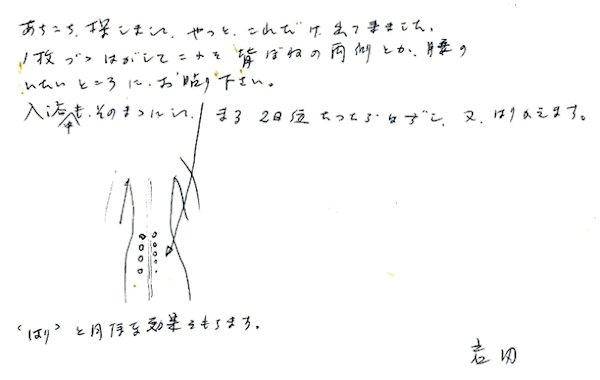 あちこち、探しまして、やっと、これだけ、出て来ました。
1枚づつはがしてこれを背ぼねの両側とか、腰の
いたいところに、お貼り下さい。
入浴中も、そのまゝにして、まる2日位たったらはずし、又、はりかえます。
"はり"と同様な効果をもちます。